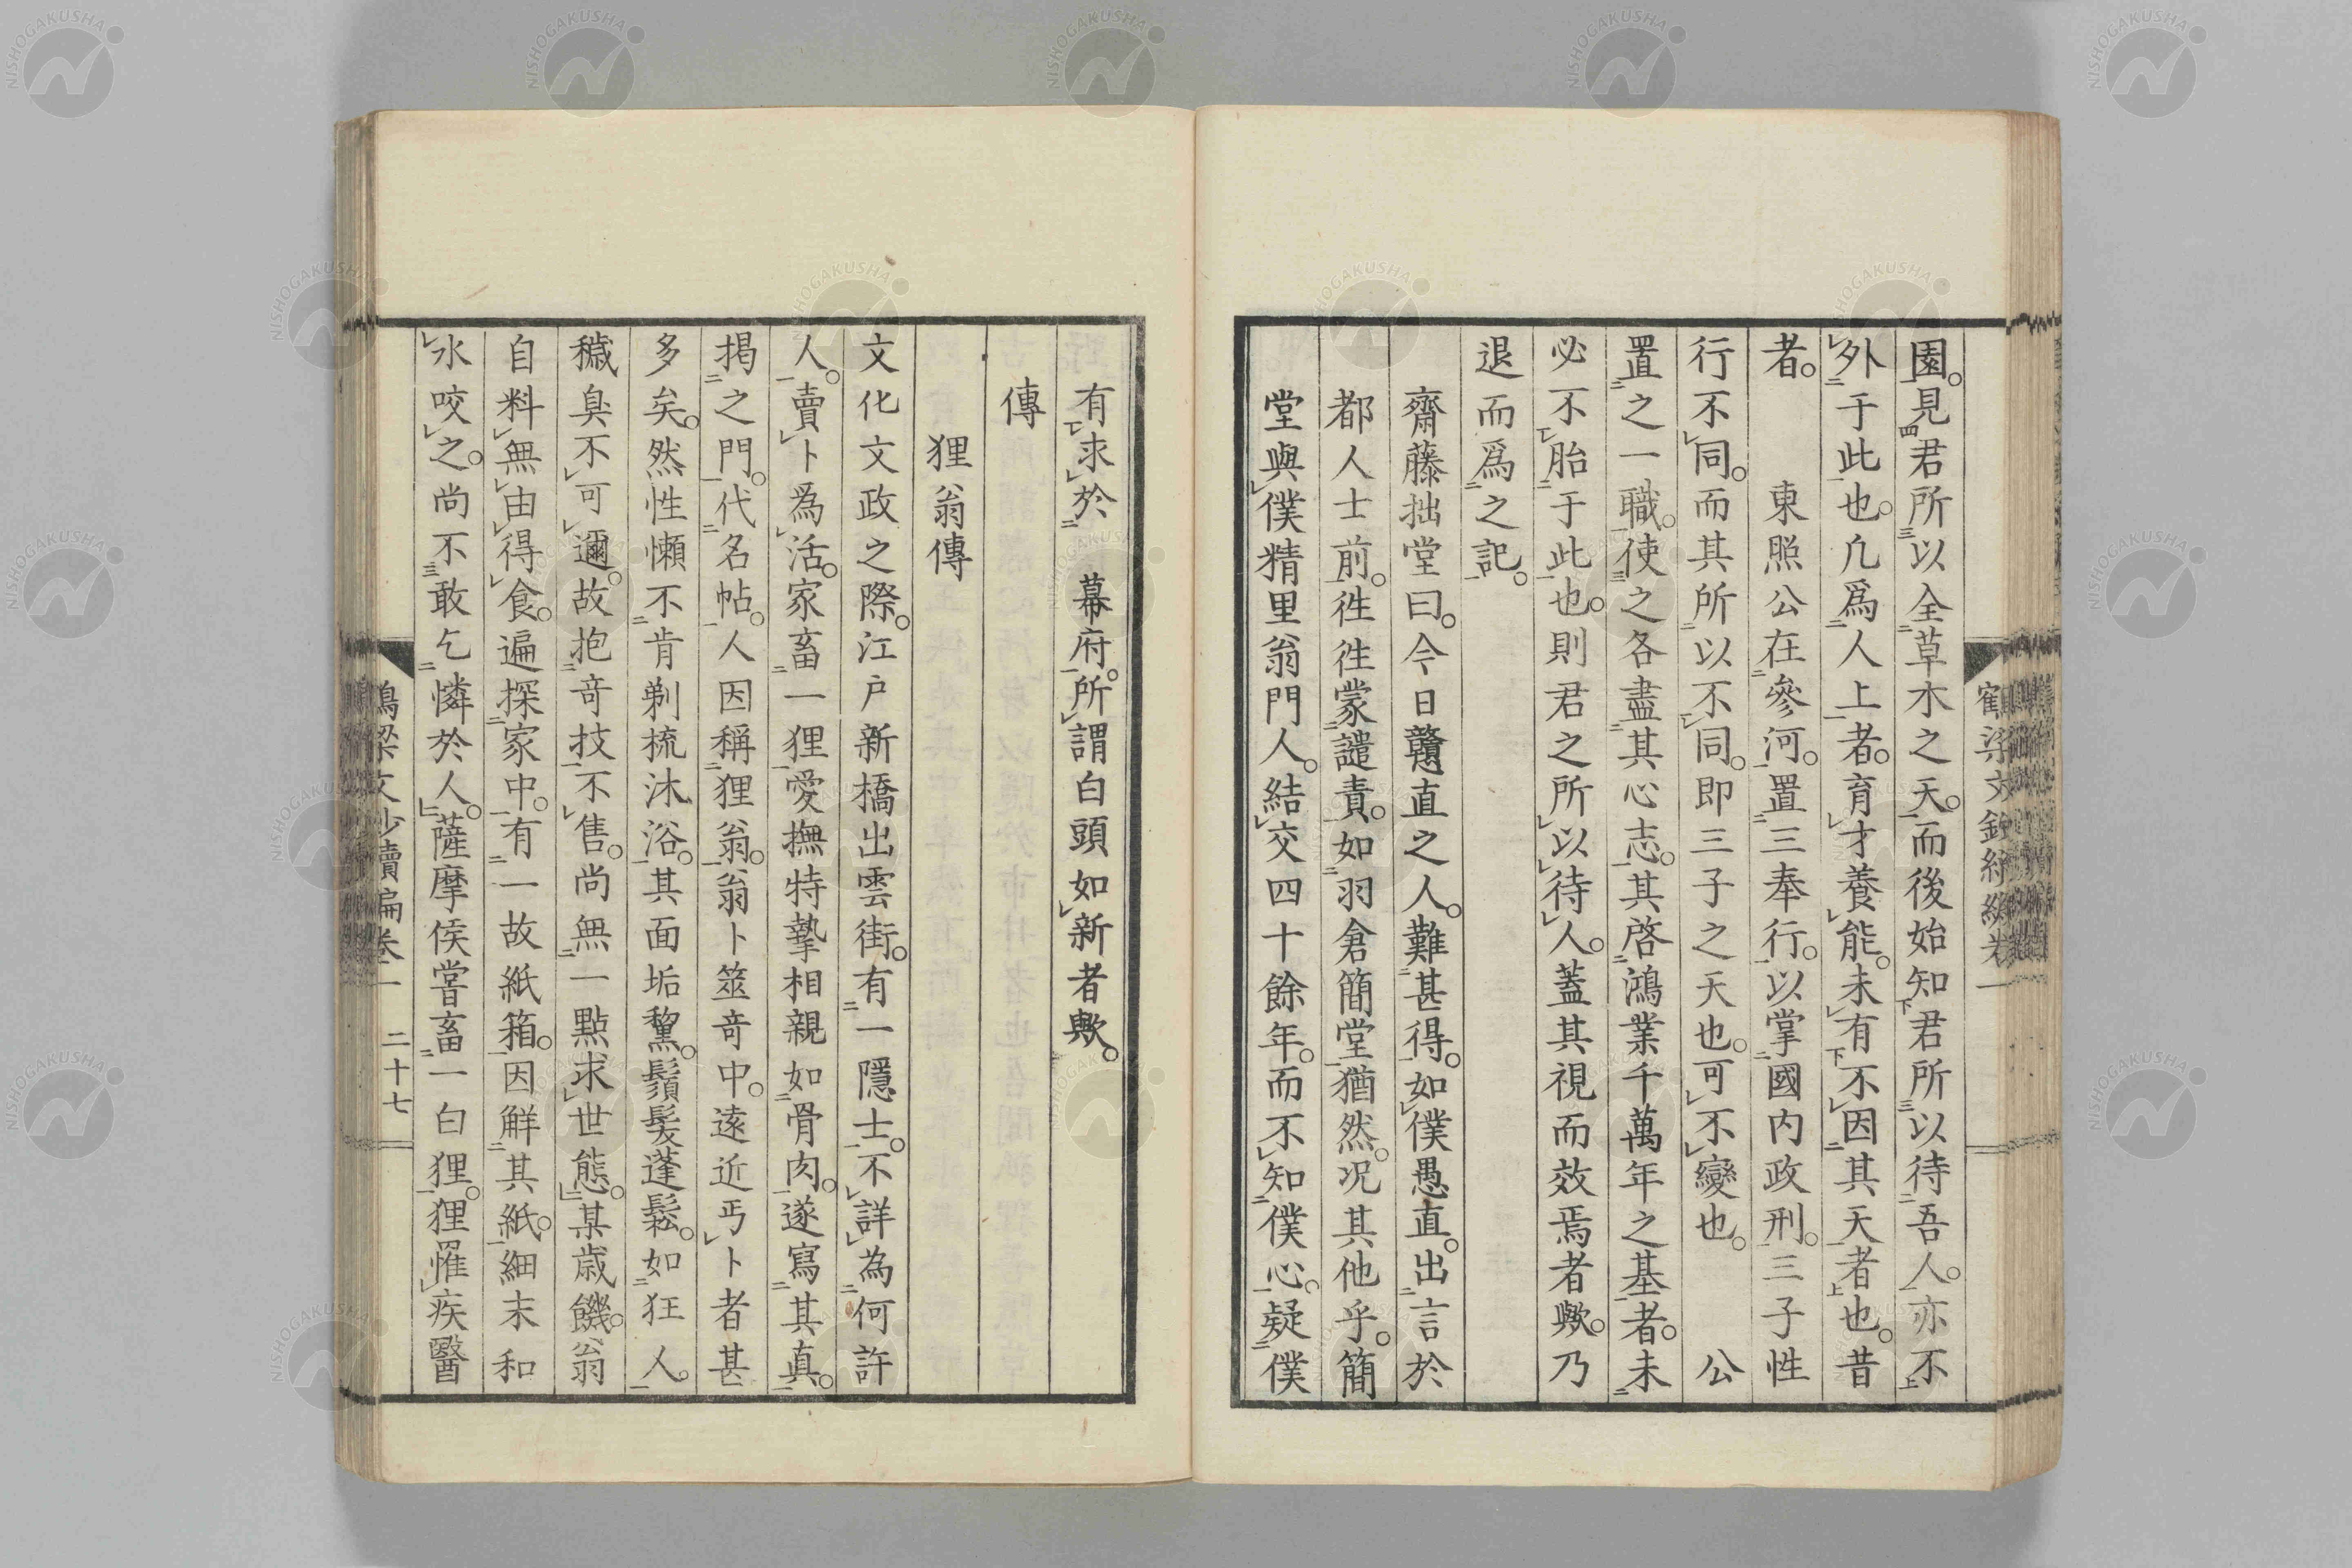 園。見君所以全草木之天。而後始知君所以待吾人。亦不
外于此也。凡爲人上者。育才養能。未有不因其天者也。昔
者。　東照公在參河。置三奉行。以掌國内政刑。三子性
行不同。而其所以不同。即三子之天也。可不變也。　公
置之一職。使之各盡其心志。其啓鴻業千萬年之基者。未
必不胎于此也。則君之所以待人。蓋其視而效焉者歟。乃
退而爲之記。
齋藤拙堂曰。今日戇直之人。難甚得。如僕愚直。出言於
都人士前。徃徃蒙譴責。如羽倉簡堂猶然。况其他乎。簡
堂與僕精里翁門人。結交四十餘年。而不知僕心。疑僕
有求於　幕府。所謂白頭如新者歟。
傳
狸翁傳
文化文政之際。江戸新橋出雲街。有一隱士。不詳為何許
人。賣卜為活。家畜一狸。愛撫特摯。相親如骨肉。遂寫其真。
掲之門。代名帖。人因稱狸翁。翁卜筮竒中。遠近丐卜者甚
多矣。然性懶不肯剃梳沐浴。其面垢黧。鬚髪蓬鬆。如狂人。
穢臭不可邇。故抱竒技不售。尚無一點求世態。某歳饑。翁
自料無由得食。遍探家中。有一故紙箱。因解其紙。細末和
水咬之。尚不敢乞憐於人。薩摩侯嘗畜一白狸。狸罹疾醫
鶴梁文鈔續編卷一
二十七
NISHOGAKUSHA